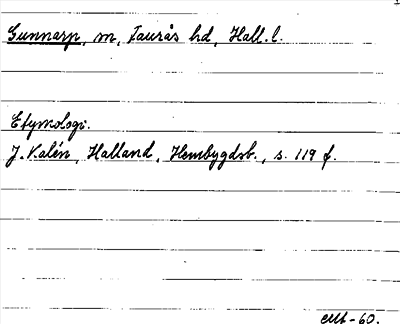 Gunnarp, m, Faurås hd, Hall. l.
Etymologi.
J. Kalén, Halland, Hembygdsb., s. 119 f.
-60.